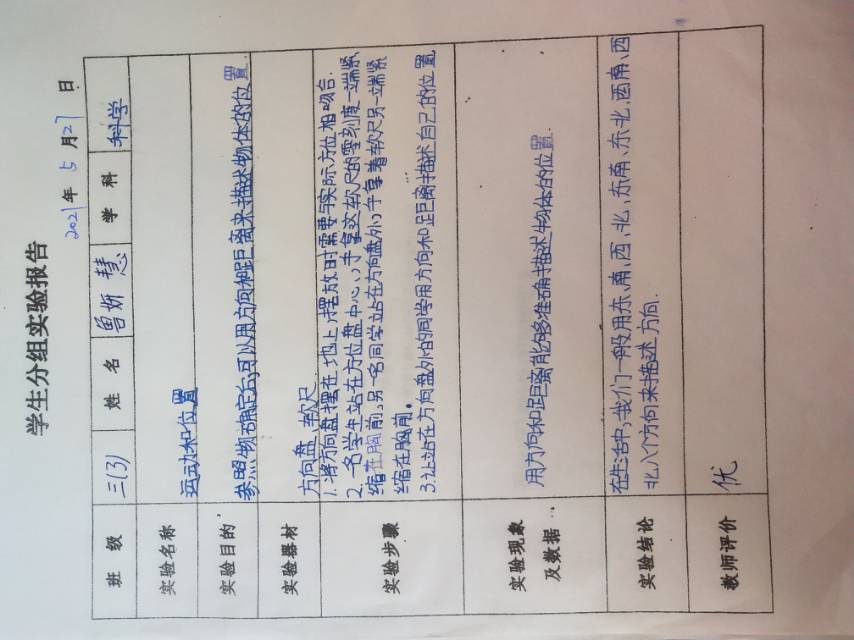 学生分组实验报告
2021年5月27日
班级 三(3) 姓名 曾妍慧 学科 科学
实验名称 运动和位置
实验目的 参照物确定后,可以用方向和距离来描述物体的位置.
实验器材 方向盘、软尺
实验步骤
1.将方向盘摆在地上,摆放时需要与实际方位相吻合.
2.一名学生站在方位盘中心,手拿这软尺的零刻度一端紧
缩在胸前,另一名同学站在方向盘外,手拿着软尺另一端紧
缩在胸前。
3.让站在方向盘外的同学用方向和距离描述自己的位置
实验现象
及数据
用方向和距离能够准确描述物体的位置.
实验结论
在生活中,我们一般用东、南、西、北、东南、东北、西南、西
北八个方向来描述方向.
教师评价 优